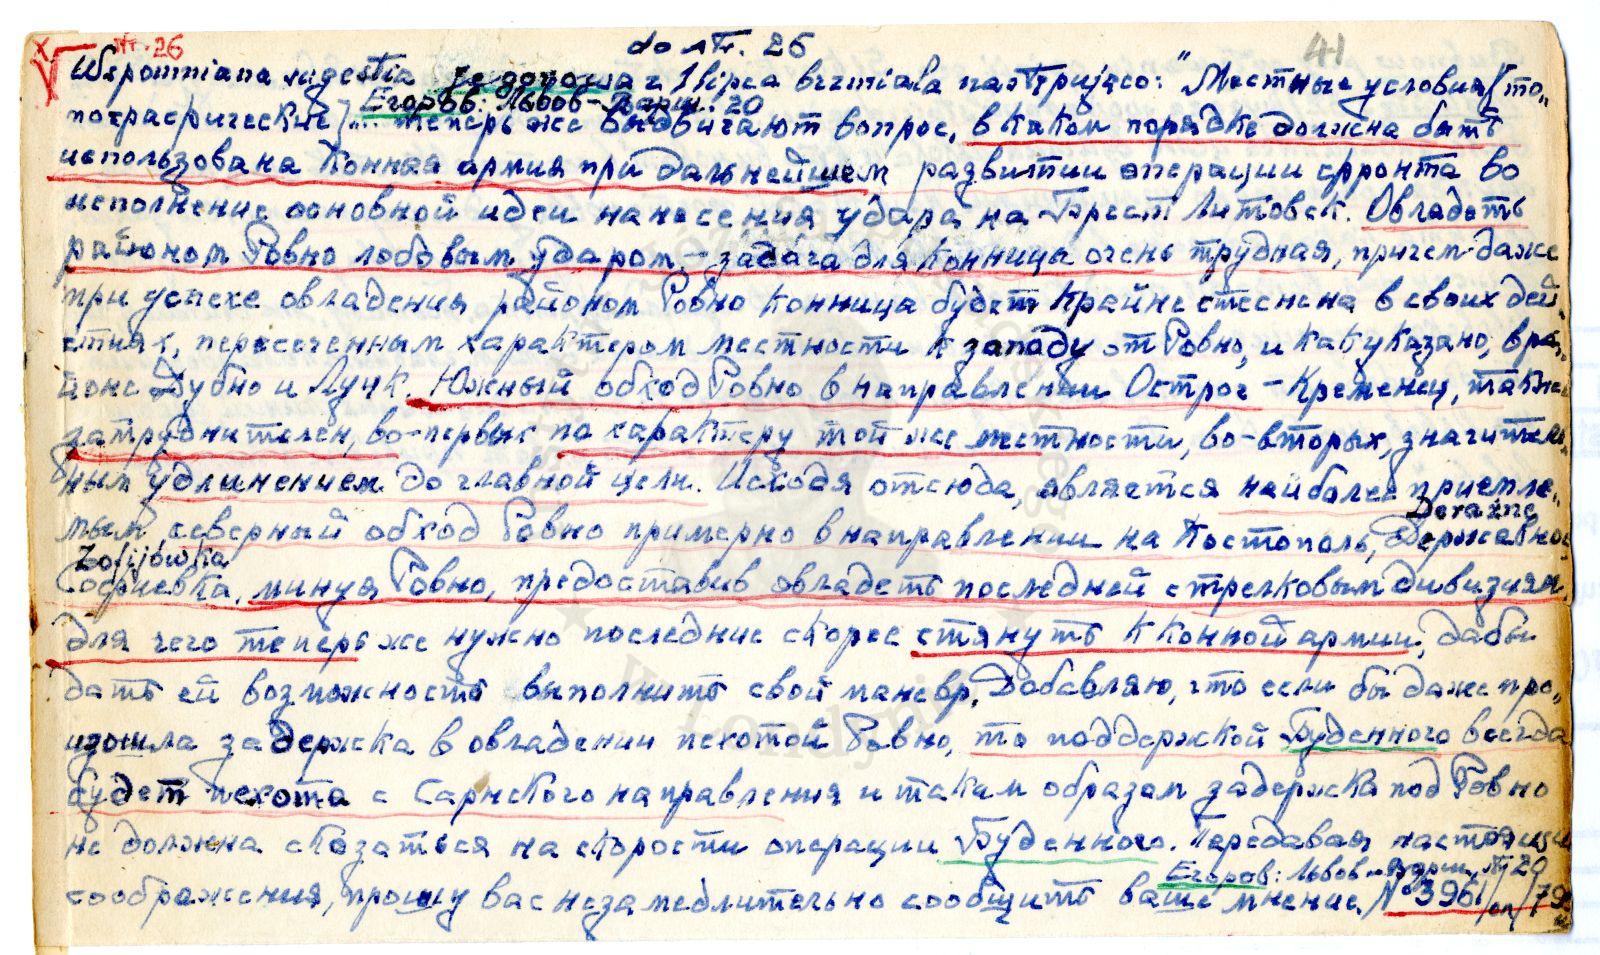 str. 26
do str. 26
41
Wspomniana sugestia Jegorowa z 1 lipca brzmiała następująco: "Местные условия (то„
Егоров: Львов–Варш. 20
пографические)... теперь же выдвигают вопрос, в каком порядке должна быть
использована Конная армия при дальнейшем развитии операции фронта во
исполнение основной идеи нанесения удара на Брест Литовск. Овладеть
районом Ровно лобовым ударом,– задача для Конницы очень трудная, причем даже
при успехе овладения районом Ровно Конница будет крайне стеснена в своих дей„
ствиях, пересеченным характером местности к западу от Ровно, и как указано, в ра„
йоне Дубно и Луцк. Южный обход Ровно в направлении Острог – Кременец, также
затруднителен, во-первых по характеру той же местности, во-вторых, значитель„
ным удлинением до главной цели. Исходя отсюда, является наиболее приемле„
Derażne
мым северный обход Ровно примерно в направлении на Костополь, Державно„
Zofijówka
Софиевка, минуя Ровно, предоставив овладеть последней стрелковым дивизиям,
для чего теперь же нужно последние скорее стянуть к Конной армии, дабы
дать ей возможность выполнить свой маневр. Добавляю, что если бы даже про„
изошла задержка в овладении пехотой Ровно, то поддержкой Буденного всегда
будет пехота с Сарнского направления и таким образом задержка под Ровно
не должна сказаться на скорости операции Буденного. Передавая настоящи
Егоров: Львов–Варш. 20
соображения, прошу вас незамедлительно сообщить ваше мнение. № 3961/оп/79